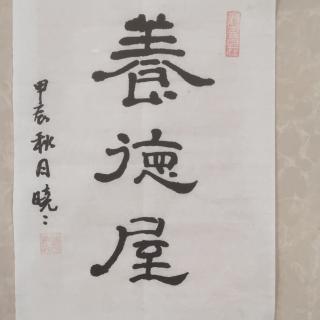 養德屋
甲辰秋月曉〻